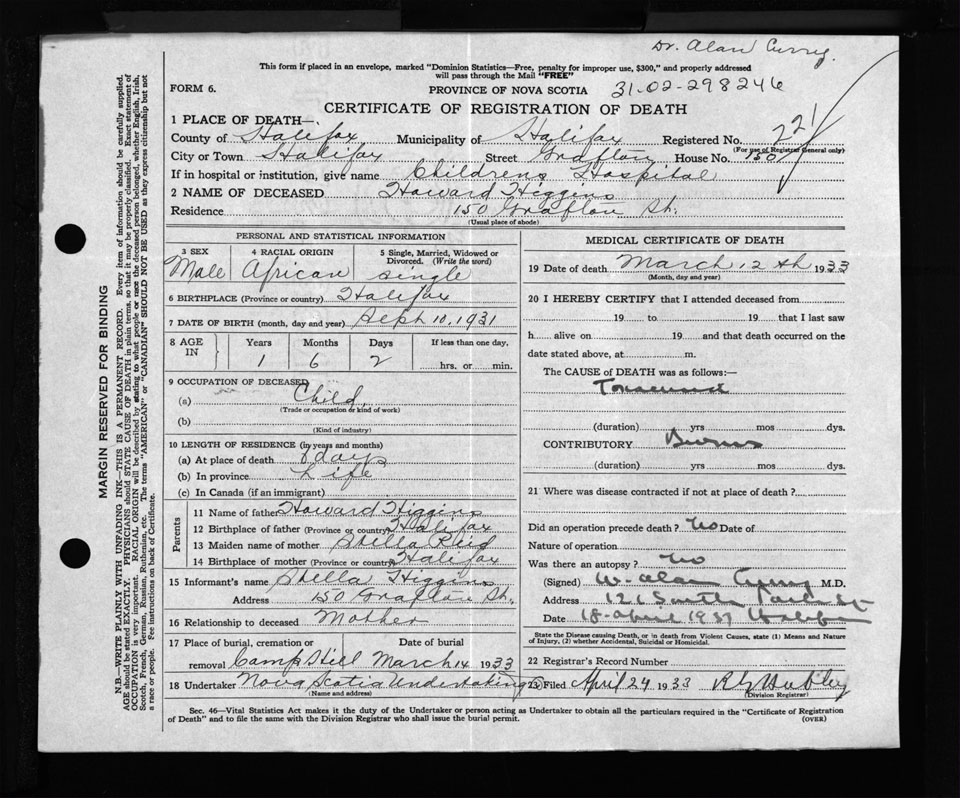 Dr. Alan Curry
This form if placed in an envelope, marked "Dominion Statistics—Free, penalty for improper use, $300," and properly addressed
will pass through the Mail "FREE"
FORM 6.
PROVINCE OF NOVA SCOTIA
31-02-298246
CERTIFICATE OF REGISTRATION OF DEATH
1 PLACE OF DEATH—
County of Halifax Municipality of Halifax Registered No. 221
(For use of Registrar General only)
City or Town Halifax Street Grafton House No. 150
If in hospital or institution, give name Childrens Hospital
2 NAME OF DECEASED Howard Higgins
Residence 150 Grafton St.
(Usual place of abode)
PERSONAL AND STATISTICAL INFORMATION
3 SEX 4 RACIAL ORIGIN 5 Single, Married, Widowed or
Divorced. (Write the word)
Male African single
6 BIRTHPLACE (Province or country) Halifax
7 DATE OF BIRTH (month, day and year) Sept 10, 1931
8 AGE IN Years Months Days If less than one day,
1 6 2 hrs. or min.
9 OCCUPATION OF DECEASED
(a) Child
(Trade or occupation or kind of work)
(b)
(Kind of industry)
10 LENGTH OF RESIDENCE (in years and months)
(a) At place of death 8 days
(b) In province Life
(c) In Canada (if an immigrant)
Parents
11 Name of father Howard Higgins
12 Birthplace of father (Province or country) Halifax
13 Maiden name of mother Stella Reid
14 Birthplace of mother (Province or country) Halifax
15 Informant's name Stella Higgins
Address 150 Grafton St.
16 Relationship to deceased Mother
17 Place of burial, cremation or Date of burial
removal Camp Hill March 14 1933
18 Undertaker Nova Scotia Undertaking
(Name and address)
MEDICAL CERTIFICATE OF DEATH
19 Date of death March 12th 1933
(Month, day and year)
20 I HEREBY CERTIFY that I attended deceased from
19 to 19 that I last saw
h alive on 19 and that death occurred on the
date stated above, at m.
The CAUSE OF DEATH was as follows:—
(duration) yrs mos dys.
CONTRIBUTORY Burns
(duration) yrs mos dys.
21 Where was disease contracted if not at place of death?
Did an operation precede death? no Date of
Nature of operation
Was there an autopsy? no
(Signed) W. Alan Curry M.D.
Address 126 South
Date 18 April 1937 Halifax
State the Disease causing Death, or in death from Violent Causes, state (1) Means and Nature
of Injury, (2) whether Accidental, Suicidal or Homicidal.
22 Registrar's Record Number
23 Filed April 24 1933
(Division Registrar)
Sec. 46—Vital Statistics Act makes it the duty of the Undertaker or person acting as Undertaker to obtain all the particulars required in the "Certificate of Registration
of Death" and to file the same with the Division Registrar who shall issue the burial permit. (OVER)
MARGIN RESERVED FOR BINDING
N.B.—WRITE PLAINLY WITH UNFADING INK—THIS IS A PERMANENT RECORD. Every item of information should be carefully supplied.
AGE should be stated EXACTLY. PHYSICIANS should STATE CAUSE OF DEATH in plain terms, so that it may be properly classified. Exact statement of
OCCUPATION is very important. RACIAL ORIGIN will be described by stating to what people or race the deceased person belonged, whether English, Irish,
Scotch, French, German, Russian, Ruthenian, etc. The terms "AMERICAN" or "CANADIAN" SHOULD NOT BE USED as they express citizenship but not
a race or people. Fee instructions on back of Certificate.